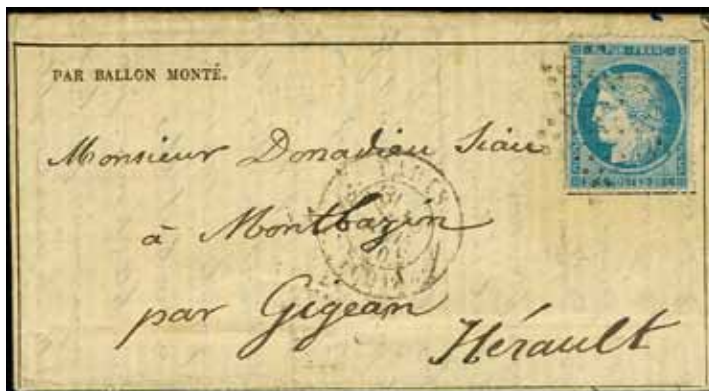 PAR BALLON MONTÉ.
Monsieur Donadieu Siau
à Montbazin
par Gigean
Hérault